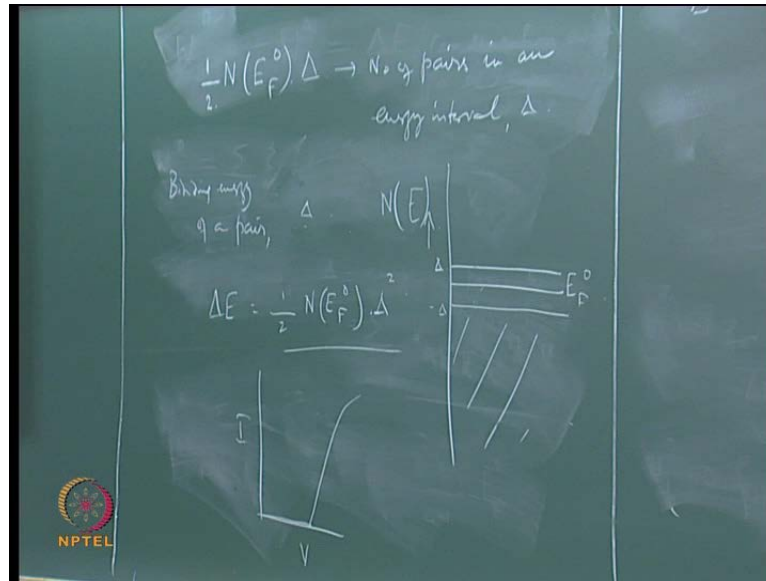 1/2 N(E_F^0) Δ → No of pairs in an
energy interval, Δ.
Binding energy
of a pair, Δ.
N(E)
Δ
E_F^0
-Δ
ΔE = 1/2 N(E_F^0).Δ^2
I
V
NPTEL